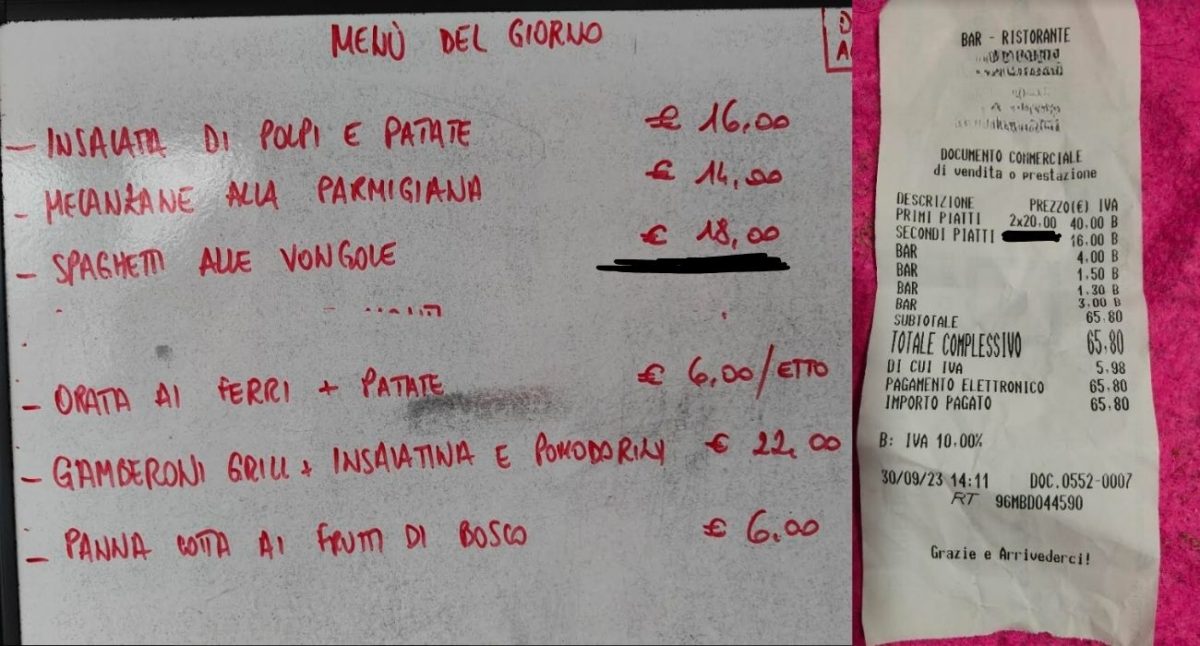 MENÙ DEL GIORNO
D
A
- INSALATA DI POLPI E PATATE € 16,00
- MELANZANE ALLA PARMIGIANA € 14,00
- SPAGHETTI ALLE VONGOLE € 18,00
- ORATA AI FERRI + PATATE € 6,00/ETTO
- GAMBERONI GRILL + INSALATINA E POMODORINI € 22,00
- PANNA COTTA AI FRUTTI DI BOSCO € 6,00
BAR - RISTORANTE
DOCUMENTO COMMERCIALE
di vendita o prestazione
DESCRIZIONE PREZZO(€) IVA
PRIMI PIATTI 2x20,00 40.00 B
SECONDI PIATTI 16.00 B
BAR 4.00 B
BAR 1.50 B
BAR 1.30 B
BAR 3.00 B
SUBTOTALE 65,80
TOTALE COMPLESSIVO 65,80
DI CUI IVA 5,98
PAGAMENTO ELETTRONICO 65,80
IMPORTO PAGATO 65,80
B: IVA 10,00%
30/09/23 14:11 DOC.0552-0007
RT 96MBD044590
Grazie e Arrivederci!